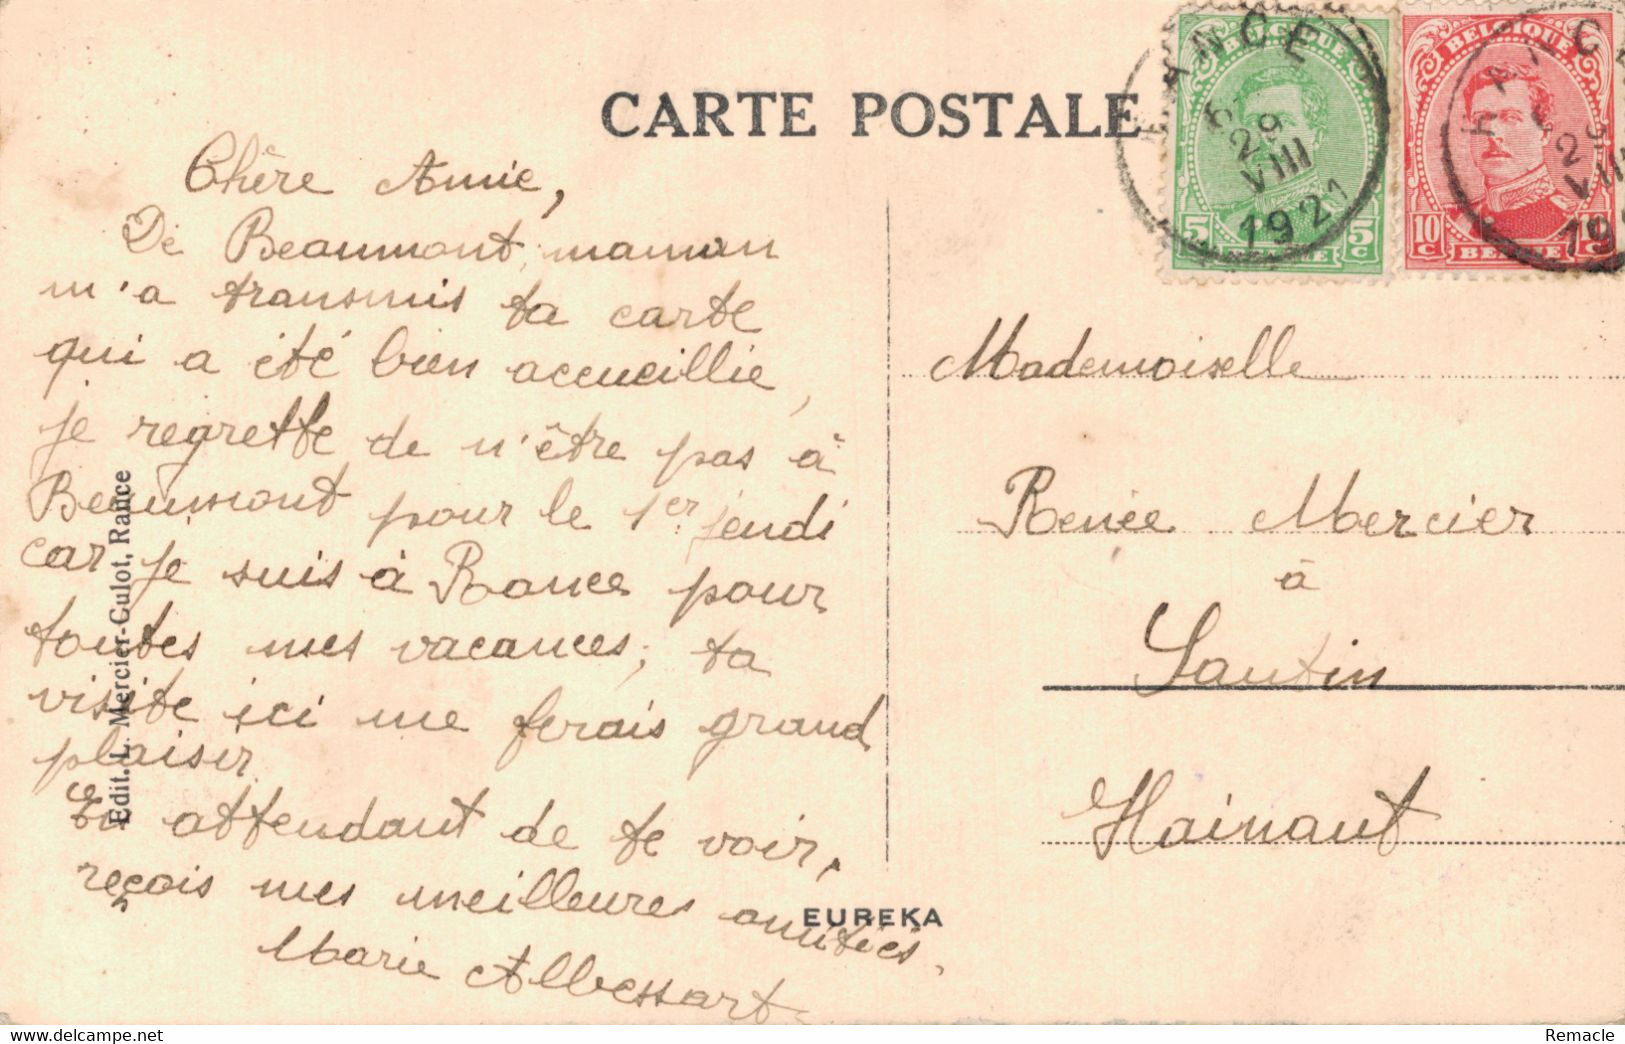 CARTE POSTALE
Chère Amie,
De Beaumont, maman
m'a transmis ta carte
qui a été bien accueillie,
je regrette de n'être pas à
Beaumont pour le 1er jeudi
car je suis à Rance pour
toutes mes vacances; ta
visite ici me ferais grand
plaisir
En attendant de te voir,
reçois mes meilleures amitiés.
Marie Albessart
Edit. L. Mercier-Gulot, Rance
EUREKA
RANCE
29
VIII
1921
BELGIQUE
5c 5c
BELGIQUE
10c
BELGIE
Mademoiselle
Renée Mercier
à
Sautin
Hainaut
Remacle